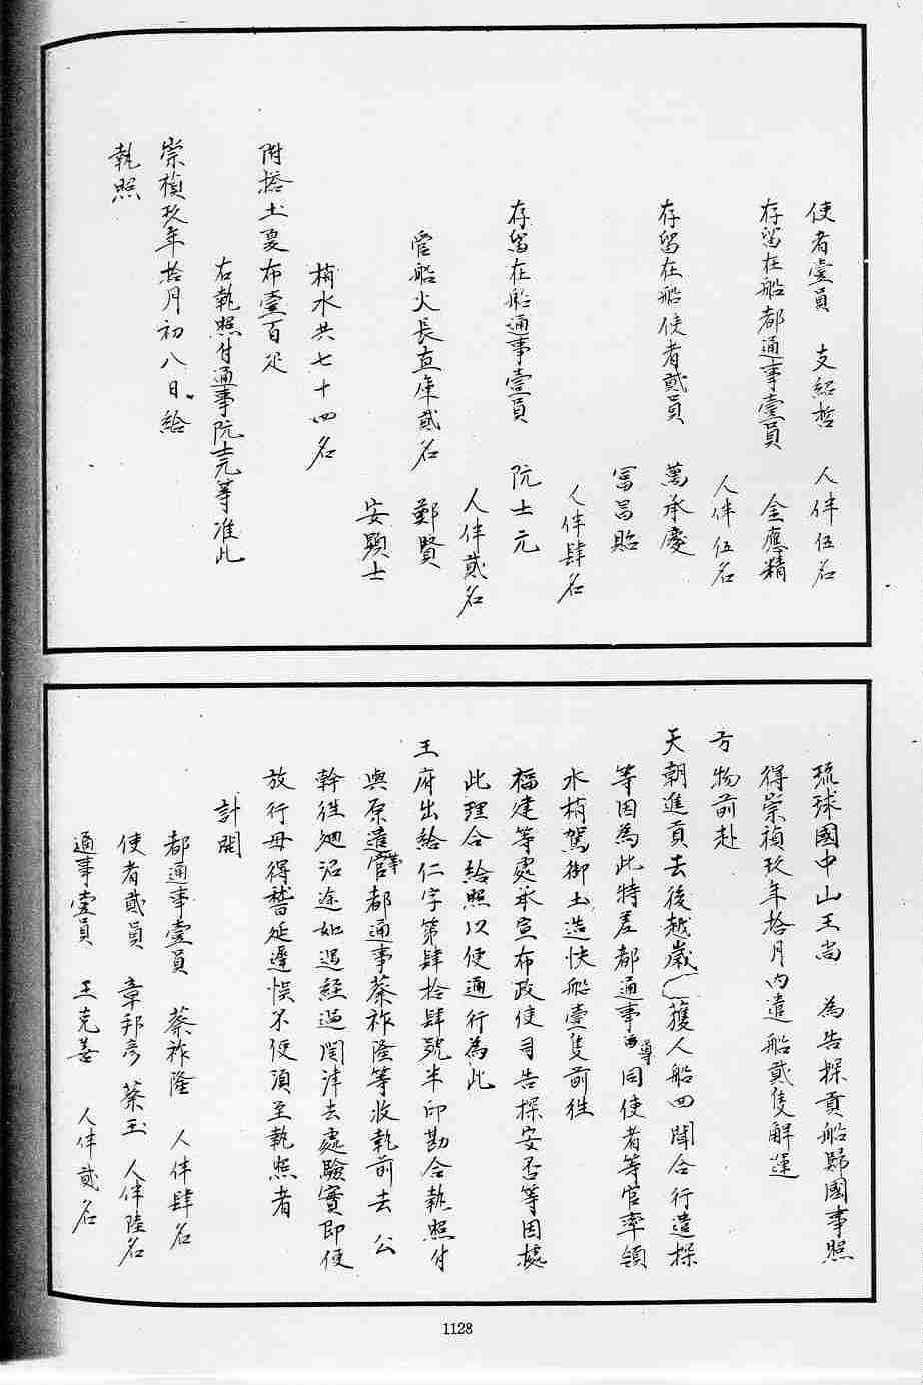 使者壹員　支紹哲　人伴伍名
存留在船都通事壹員　金應精
人伴伍名
存留在船使者貳員　萬承慶
富昌貽
人伴肆名
存留在船通事壹員　阮士元
人伴貳名
管船火長直庫貳名　鄭賢
安顯士
梢水共七十四名
附搭土夏布壹百疋
右執照付通事阮士元等准此
崇楨玖年拾月初八日給
執照
琉球國中山王尚　為告探貢船歸國事照
得崇禎玖年拾月內遣船貳隻解運
方物前赴
天朝進貢去後越歲獲人船四聞合行遣探
等因為此特差都通事同使者等官率領
水梢駕御土造快船壹隻前往
福建等處承宣布政使司告探安否等因據
此理合給照以便通行為此
王府出給仁字第肆拾肆號半印勘合執照付
與原遣官都通事蔡祚隆等收執前去　公
幹徃廻沿途如遇經過関津去處驗實即便
放行毋得嵆延遲悞不便須至執照者
計開
都通事壹員　蔡祚隆　人伴肆名
使者貳員　章邦彥　蔡玉　人伴陸名
通事壹員　王克善　人伴貳名
1128